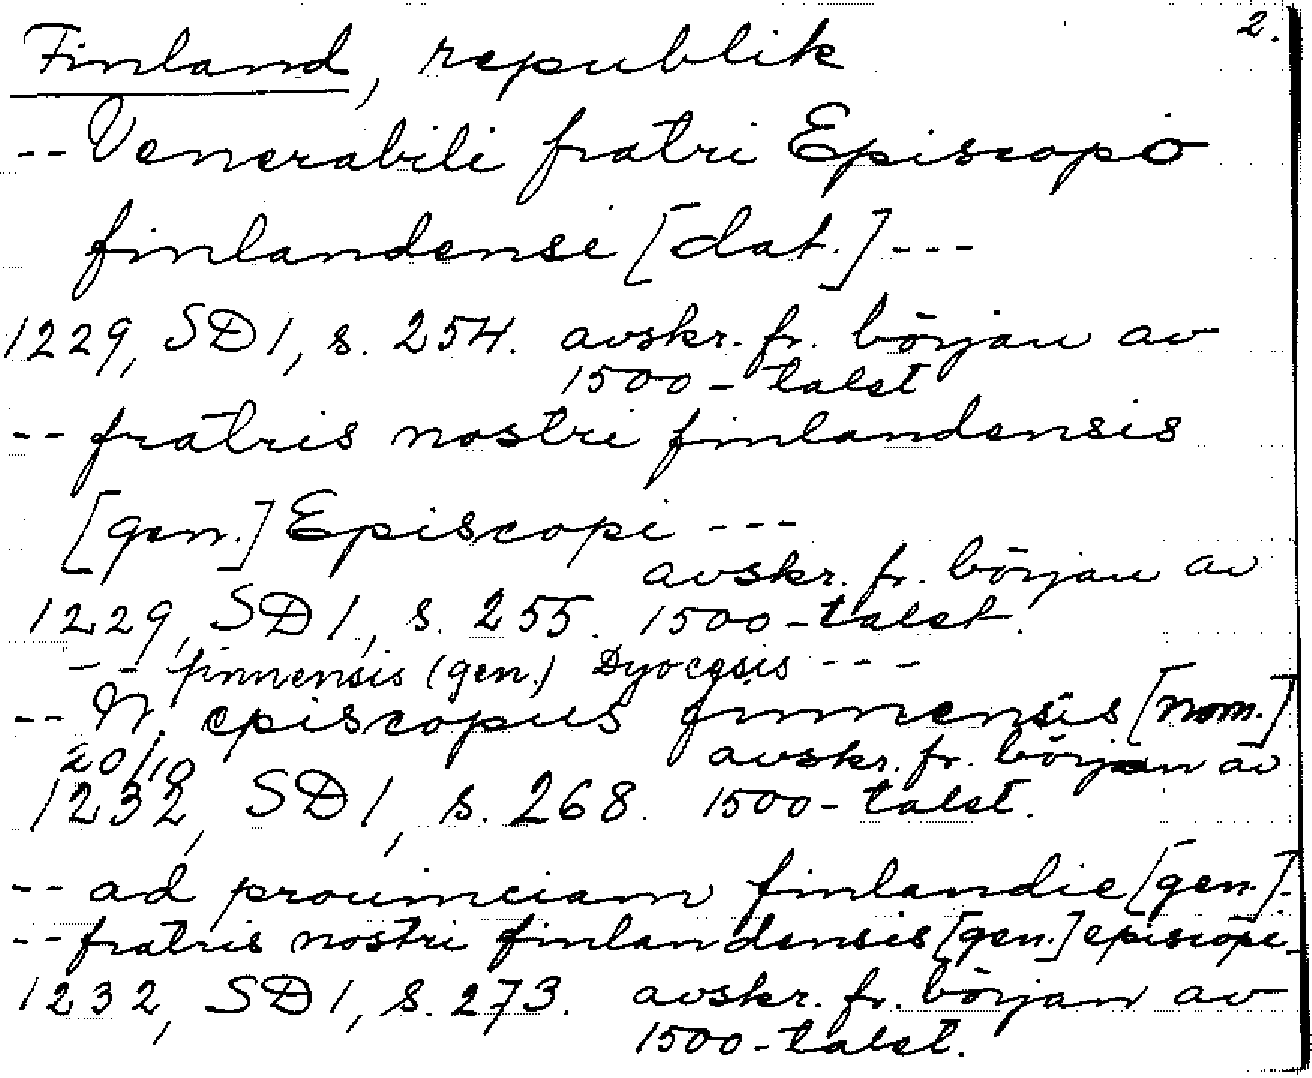 2.
Finland, republik
-- Venerabili fratri Episcopo
finlandensi [dat.] ---
1229, SD 1, s. 254. avskr. fr. början av
1500-talet
-- fratris nostri finlandensis
[gen.] Episcopi ---
avskr. fr. början av
1229, SD 1, s. 255. 1500-talet.
-- finnensis (gen.) Dyocesis ---
-- N. episcopus finnensis [nom.]
20/10 avskr. fr. början av
1232, SD 1, s. 268. 1500-talet.
-- ad prouinciam finlandie [gen.]-
-- fratris nostri finlandensis [gen.] episcopi-
1232, SD 1, s. 273. avskr. fr. början av
1500-talet.